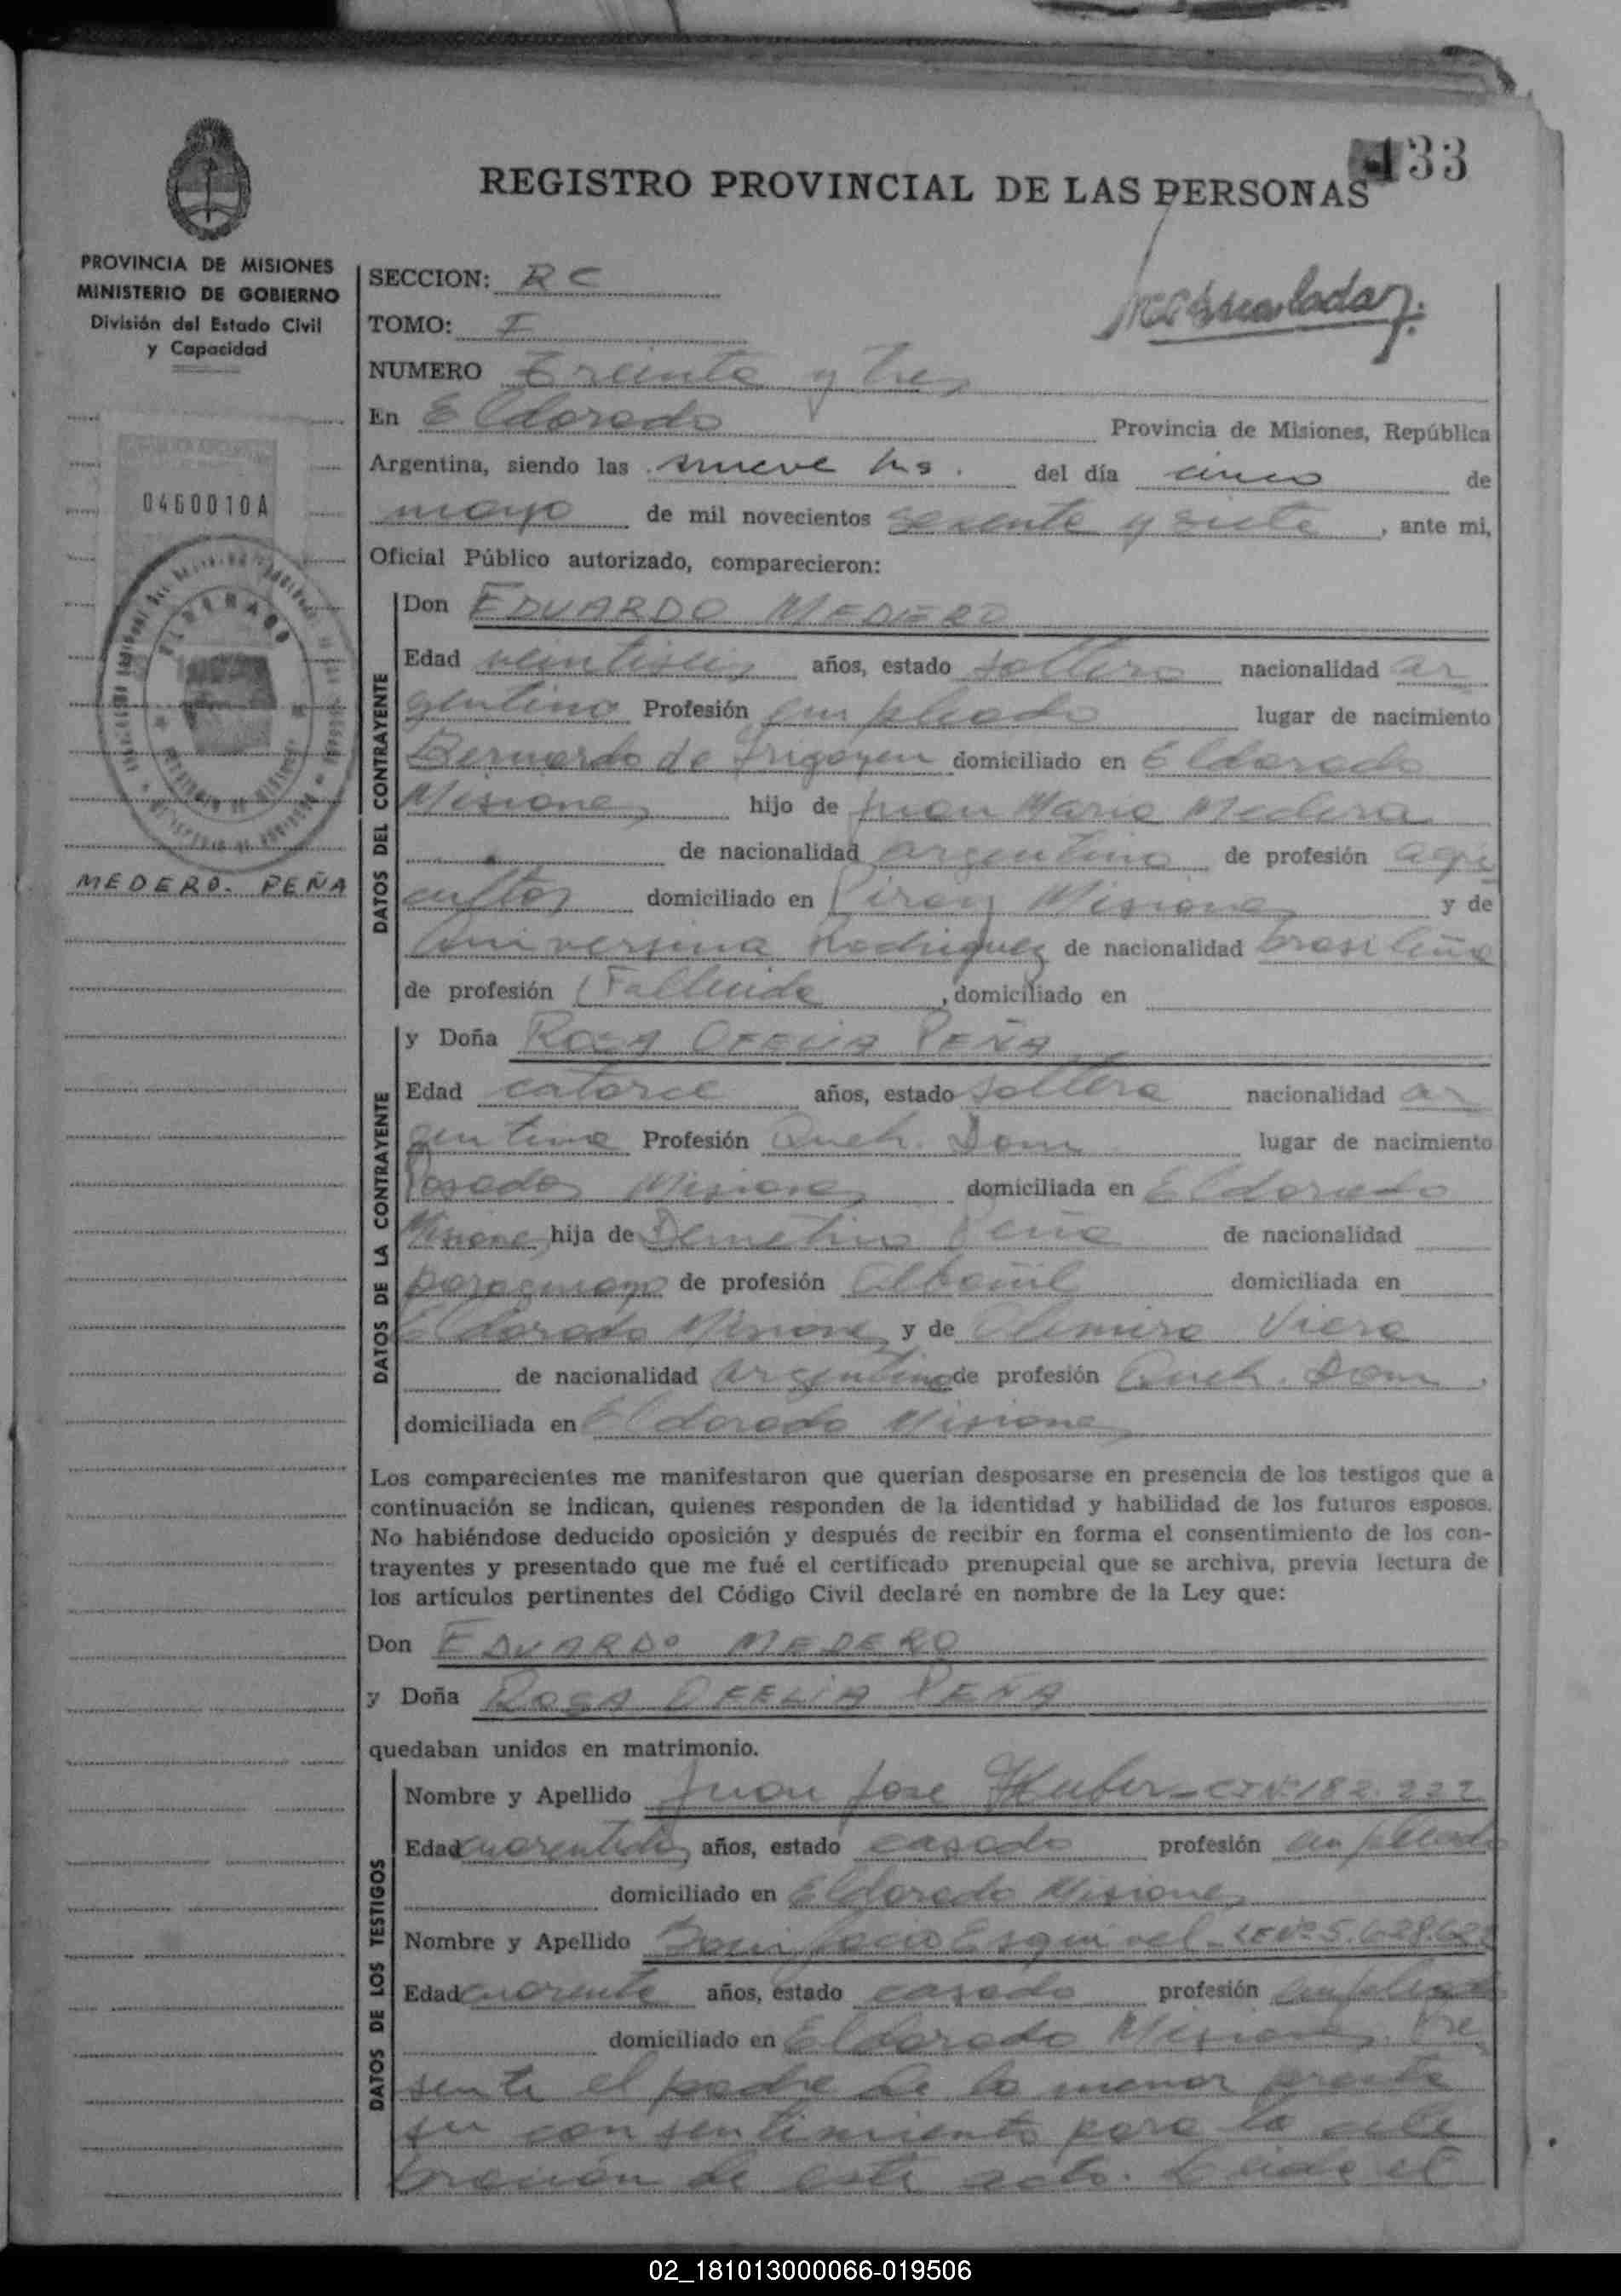 133
REGISTRO PROVINCIAL DE LAS PERSONAS
PROVINCIA DE MISIONES
MINISTERIO DE GOBIERNO
División del Estado Civil
y Capacidad
0460010A
ELDORADO
MEDERO. PEÑA
SECCION: R C
TOMO: I
NUMERO Treinta y tres
En Eldorado Provincia de Misiones, República
Argentina, siendo las nueve hs. del día cinco de
mayo de mil novecientos sesenta y siete, ante mi,
Oficial Público autorizado, comparecieron:
DATOS DEL CONTRAYENTE
Don EDUARDO MEDERO
Edad veintiseis años, estado soltero nacionalidad ar
gentino Profesión empleado lugar de nacimiento
Bernardo de Irigoyen domiciliado en Eldorado
Misiones hijo de Juan Maria Medera
de nacionalidad argentino de profesión agri
cultor domiciliado en Piray Misiones y de
Universina Rodriguez de nacionalidad brasileña
de profesión (Fallecida , domiciliado en
DATOS DE LA CONTRAYENTE
y Doña ROSA OFELIA PEÑA
Edad catorce años, estado soltera nacionalidad ar
gentina Profesión Queh. Dom lugar de nacimiento
Posadas Misiones domiciliada en Eldorado
Misiones hija de Demetrio Peña de nacionalidad
paraguayo de profesión Albañil domiciliada en
Eldorado Misiones y de Almira Viera
de nacionalidad argentina de profesión Queh. Dom.
domiciliada en Eldorado Misiones
Los comparecientes me manifestaron que querían desposarse en presencia de los testigos que a
continuación se indican, quienes responden de la identidad y habilidad de los futuros esposos.
No habiéndose deducido oposición y después de recibir en forma el consentimiento de los con-
trayentes y presentado que me fué el certificado prenupcial que se archiva, previa lectura de
los artículos pertinentes del Código Civil declaré en nombre de la Ley que:
Don EDUARDO MEDERO
y Doña ROSA OFELIA PEÑA
quedaban unidos en matrimonio.
DATOS DE LOS TESTIGOS
Nombre y Apellido Juan Jose Huber - CI Nº 182.222
Edad cuarentidos años, estado casado profesión empleado
domiciliado en Eldorado Misiones
Nombre y Apellido Bonifacio Esquivel - LE Nº 5.628.62
Edad cuarenta años, estado casado profesión empleado
domiciliado en Eldorado Misiones. Pre
sente el padre de la menor presta
su consentimiento para la cele
bración de este acto. Leida el
02_181013000066-019506